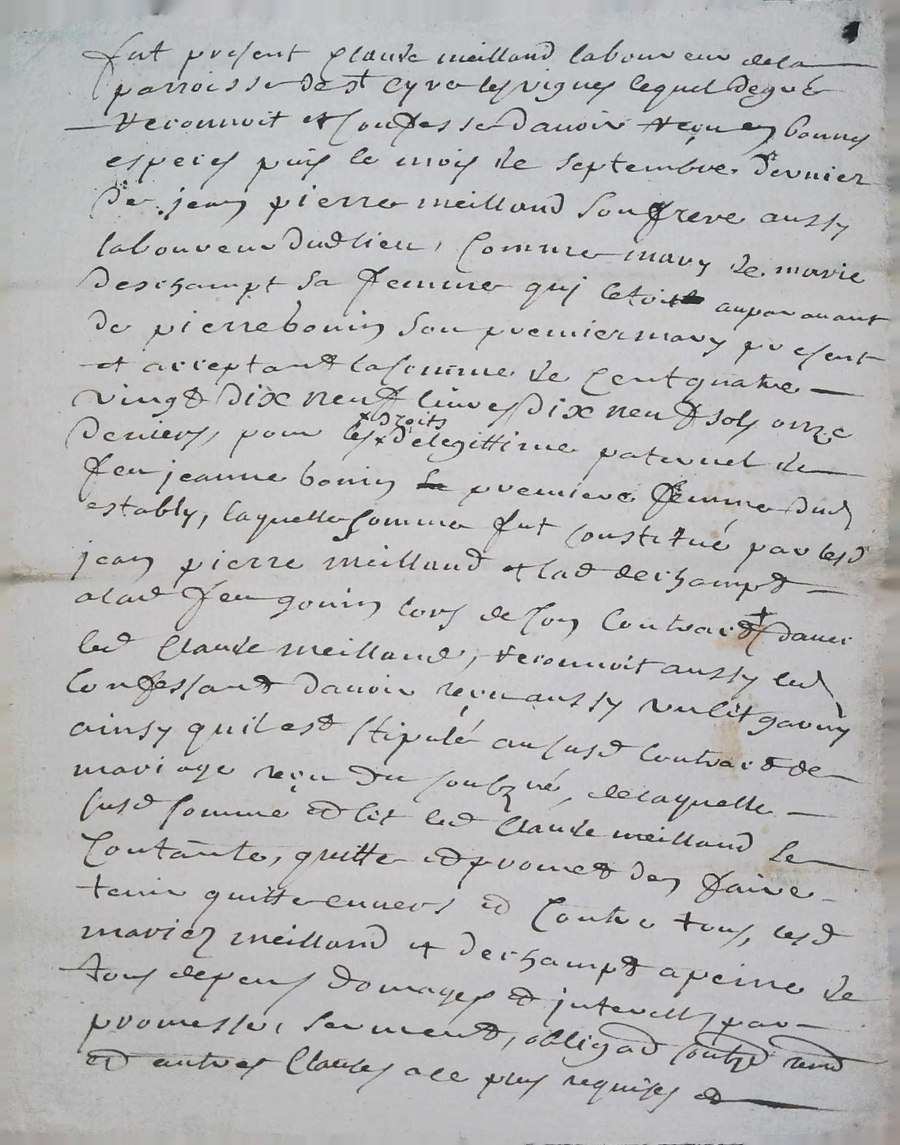 fut present Claude meilland laboureur de la
parroisse de st Cyre les vignes lequel de gré
reconnoit et Confesse d'avoir reçu en bonnes
especes puis le mois de septembre dernier
de jean pierre meilland son frere aussy
laboureur dud lieu, Comme mary de marie
deschampt sa femme qui letoit auparavant
de pierre bonin son premier mary present
et acceptant la somme de Cent quatre
vingt dix neuf livres dix neuf sols onze
deniers, pour les droits de legittime paternel de
feu jeanne bonin premiere femme dud
estably, laquelle somme fut constitué par lesd
jean pierre meilland et lad deschampt
a lad feu gonin lors de son Contract davec
led Claude meilland, reconnoit aussy led
Confessant davoir reçu aussy un lit garny
ainsy quil est stipulé au susd Contract de
mariage reçu du soubzné, de laquelle
susd somme et lit led Claude meilland se
Contante, quitte et promet den faire
tenir quitte envers et Contre tous, lesd
mariez meilland et deschampt a peine de
tous depens domages et interests par
promesse, serment, obligaon soubz renon
et autres Clauses a ce plus requises et